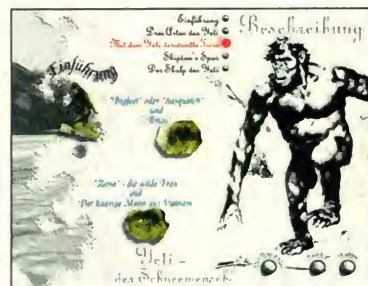 Einführung
Drei Arten des Yeti
Mit dem Yeti verwandte Tiere
Shipton's Spur
Der Skalp des Yeti
Beschreibung
Einführung
"Bigfoot" oder "Sasquatch"
und
"Zana" - die wilde Frau
und
Der haarige Mann aus Vietnam
Yeti -
der Schneemensch